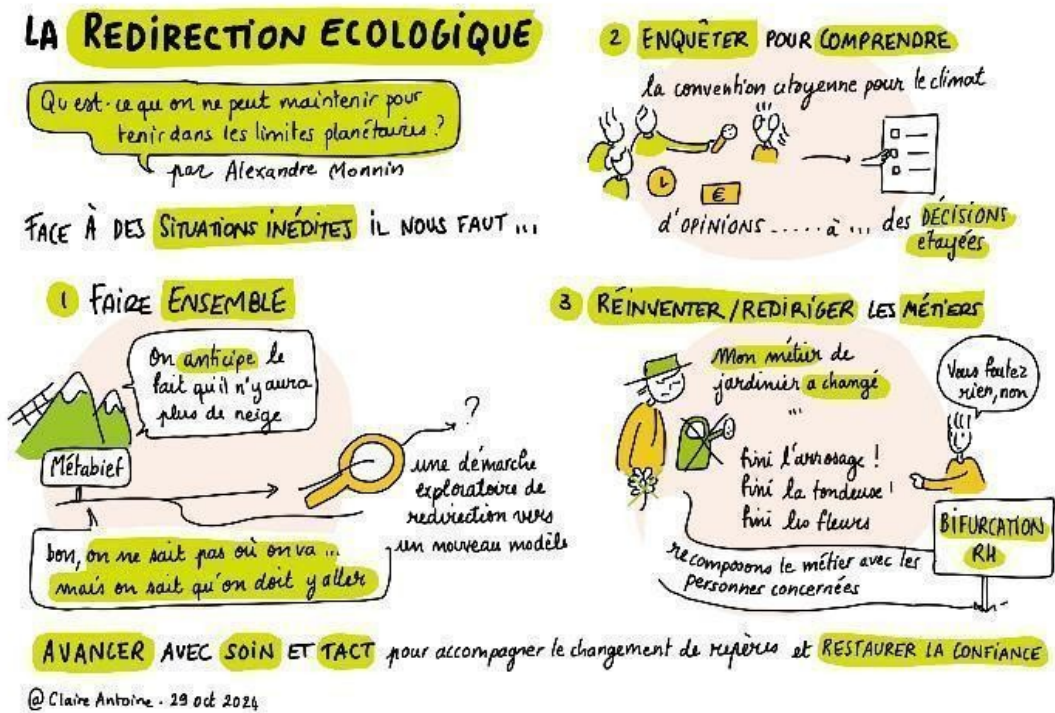 LA REDIRECTION ECOLOGIQUE
Qu'est-ce qu'on ne peut maintenir pour
tenir dans les limites planétaires ?
par Alexandre Monnin
FACE À DES SITUATIONS INÉDITES IL NOUS FAUT ...
1 FAIRE ENSEMBLE
On anticipe le
fait qu'il n'y aura
plus de neige
Métabief
?
une démarche
exploratoire de
redirection vers
un nouveau modèle
bon, on ne sait pas où on va ...
mais on sait qu'on doit y aller
2 ENQUÊTER POUR COMPRENDRE
la convention citoyenne pour le climat
€
d'OPINIONS ..... à ... des DÉCISIONS
étayées
3 RÉINVENTER / REDIRIGER LES MÉTIERS
Mon métier de
jardinier a changé
...
fini l'arrosage !
fini la tondeuse !
fini les fleurs
Vous foutez
rien, non
BIFURCATION
RH
recomposons le métier avec les
personnes concernées
AVANCER AVEC SOIN ET TACT pour accompagner le changement de repères et RESTAURER LA CONFIANCE
@ Claire Antoine - 29 oct 2024